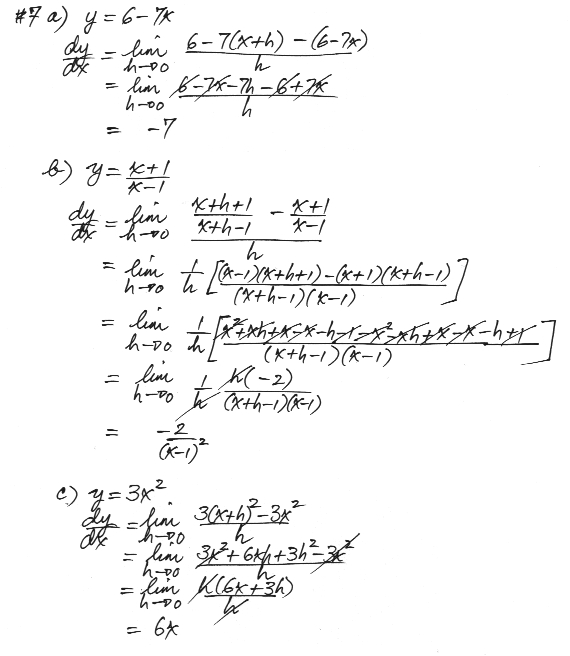 #7 a) y = 6 - 7x
dy/dx = lim h→0 (6 - 7(x+h) - (6-7x))/h
= lim h→0 (6 - 7x - 7h - 6 + 7x)/h
= -7
b) y = (x+1)/(x-1)
dy/dx = lim h→0 ((x+h+1)/(x+h-1) - (x+1)/(x-1))/h
= lim h→0 1/h [((x-1)(x+h+1) - (x+1)(x+h-1))/((x+h-1)(x-1))]
= lim h→0 1/h [(x²+xh+x-x-h-1-x²-xh+x-x-h+1)/((x+h-1)(x-1))]
= lim h→0 1/h h(-2)/((x+h-1)(x-1))
= -2/(x-1)²
c) y = 3x²
dy/dx = lim h→0 (3(x+h)² - 3x²)/h
= lim h→0 (3x² + 6xh + 3h² - 3x²)/h
= lim h→0 h(6x+3h)/h
= 6x